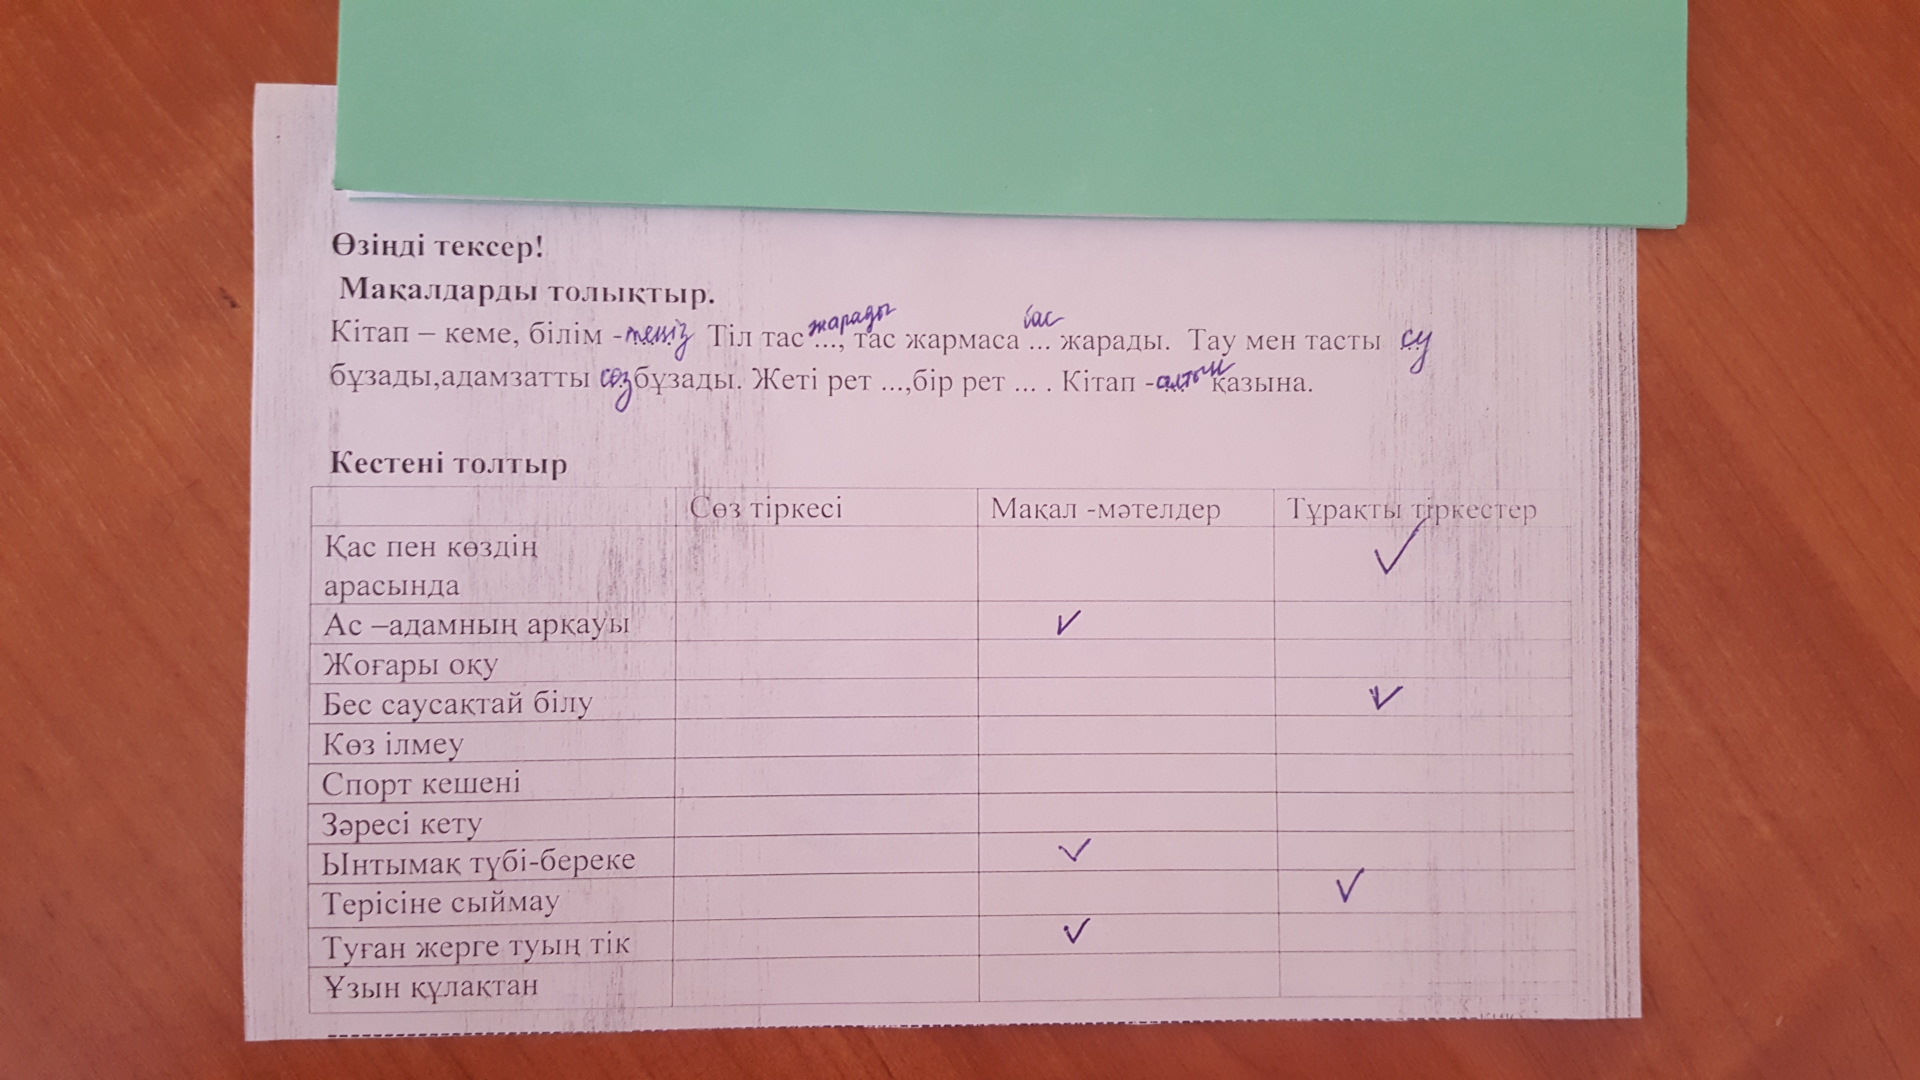 Өзіңді тексер!
Мақалдарды толықтыр.
Кітап – кеме, білім -теңіз Тіл тас жарады..., тас жармаса бас... жарады. Тау мен тасты су
бұзады,адамзатты сөз бұзады. Жеті рет ...,бір рет ... . Кітап -алтын қазына.
Кестені толтыр
Сөз тіркесі Мақал -мәтелдер Тұрақты тіркестер
Қас пен көздің ✓
арасында
Ас –адамның арқауы ✓
Жоғары оқу
Бес саусақтай білу ✓
Көз ілмеу
Спорт кешені
Зәресі кету
Ынтымақ түбі-береке ✓
Терісіне сыймау ✓
Туған жерге туың тік ✓
Ұзын құлақтан